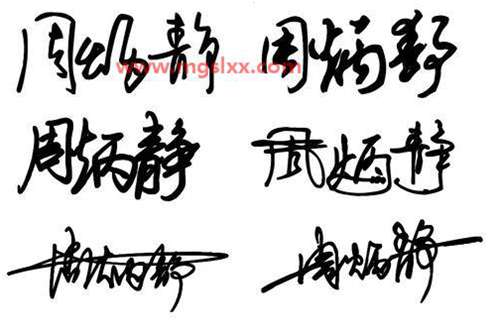 周炳静 周炳静
www.mgslxx.com
周炳静 周炳静
周炳静 周炳静